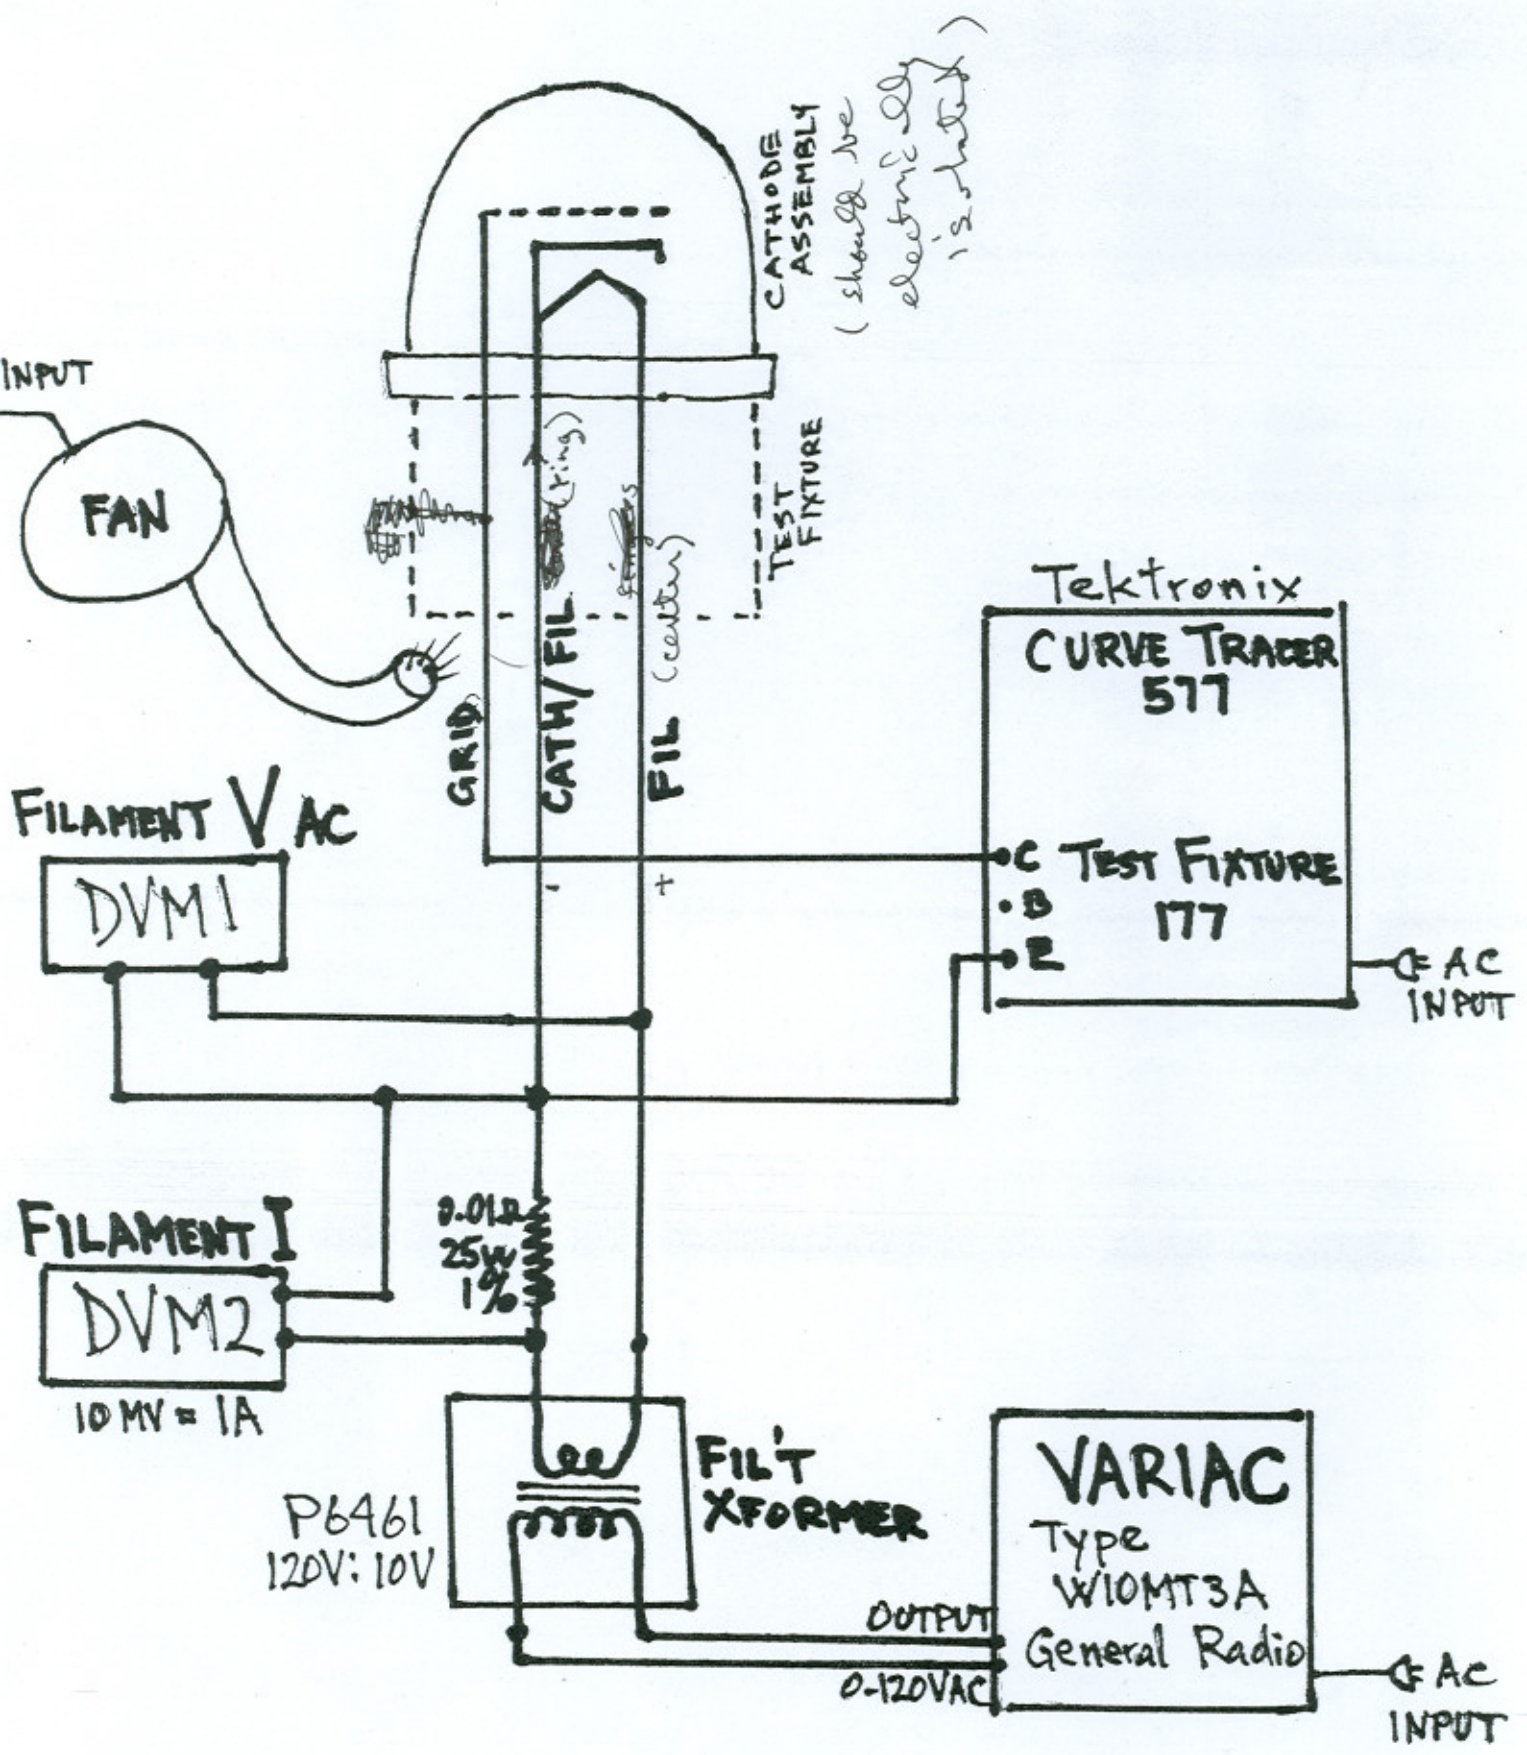 CATHODE
ASSEMBLY
(should be
electrically
isolated)
INPUT
FAN
TEST
FIXTURE
(ring)
(center)
GRID
CATH/FIL
FIL
- +
Tektronix
CURVE TRACER
577
C TEST FIXTURE
B 177
E
AC
INPUT
FILAMENT V AC
DVM1
FILAMENT I
DVM2
10 MV = 1A
0.01Ω
25W
1%
P6461
120V: 10V
FIL'T
XFORMER
VARIAC
Type
W10MT3A
General Radio
OUTPUT
0-120VAC
AC
INPUT